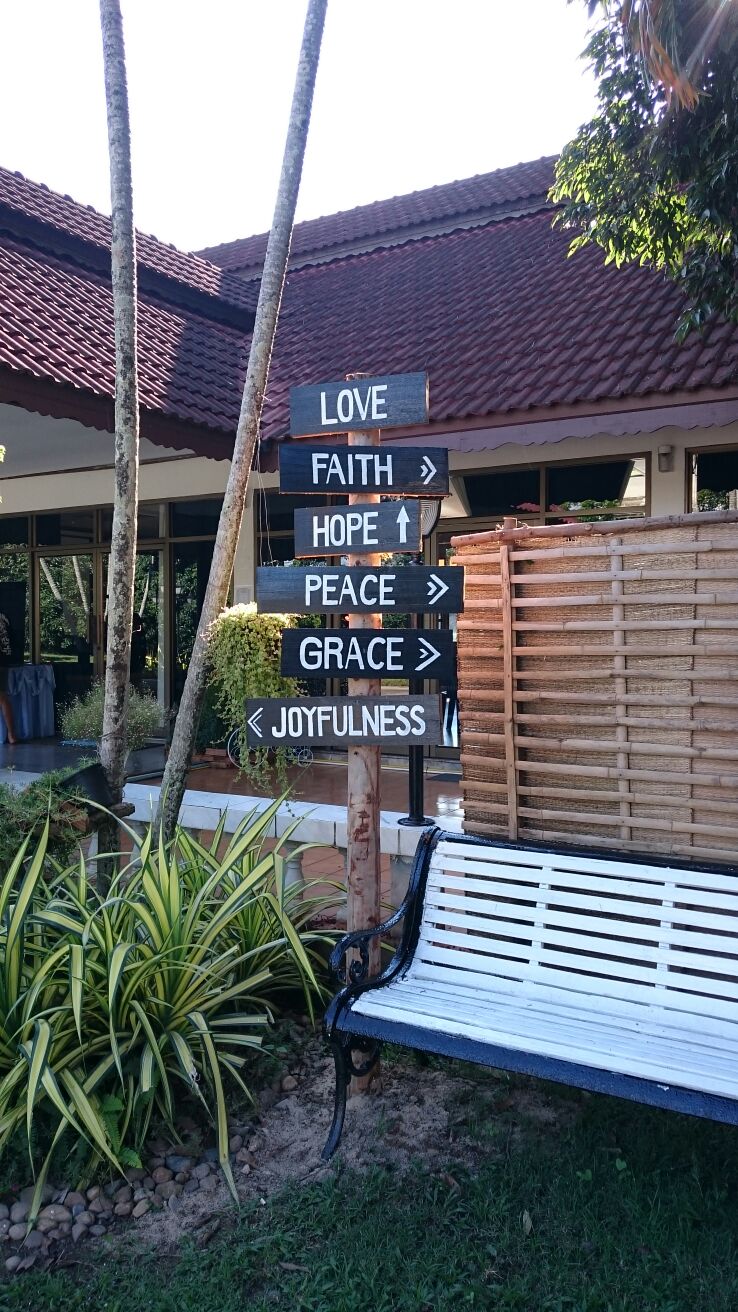 LOVE
FAITH »
HOPE ↑
PEACE »
GRACE »
« JOYFULNESS